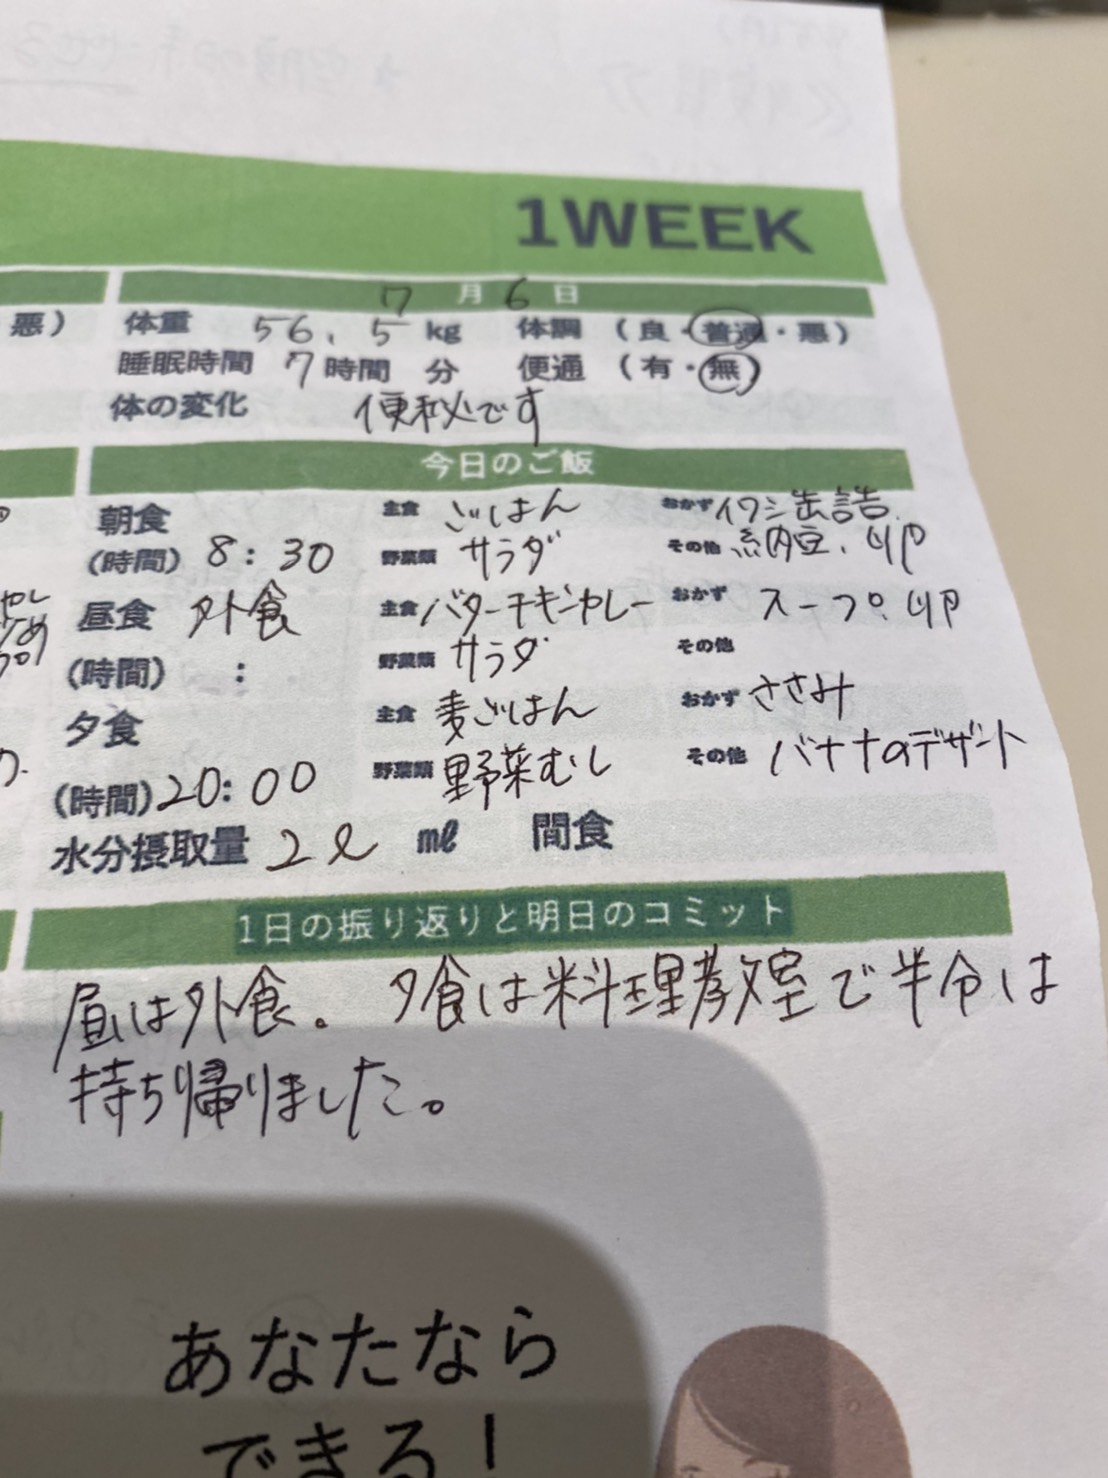 1WEEK
7月6日
悪)
体重 56.5kg 体調 (良・普通・悪)
睡眠時間 7時間 分 便通 (有・無)
体の変化 便秘です
今日のご飯
朝食 主食 ごはん おかず イワシ缶詰
(時間) 8:30 野菜類 サラダ その他 納豆、卵
昼食 外食 主食 バターチキンカレー おかず スープ、卵
(時間) : 野菜類 サラダ その他
夕食 主食 麦ごはん おかず ささみ
(時間)20:00 野菜類 野菜むし その他 バナナのデザート
水分摂取量 2ℓ ㎖ 間食
1日の振り返りと明日のコミット
昼は外食。夕食は料理教室で半分は
持ち帰りました。
あなたなら
できる!